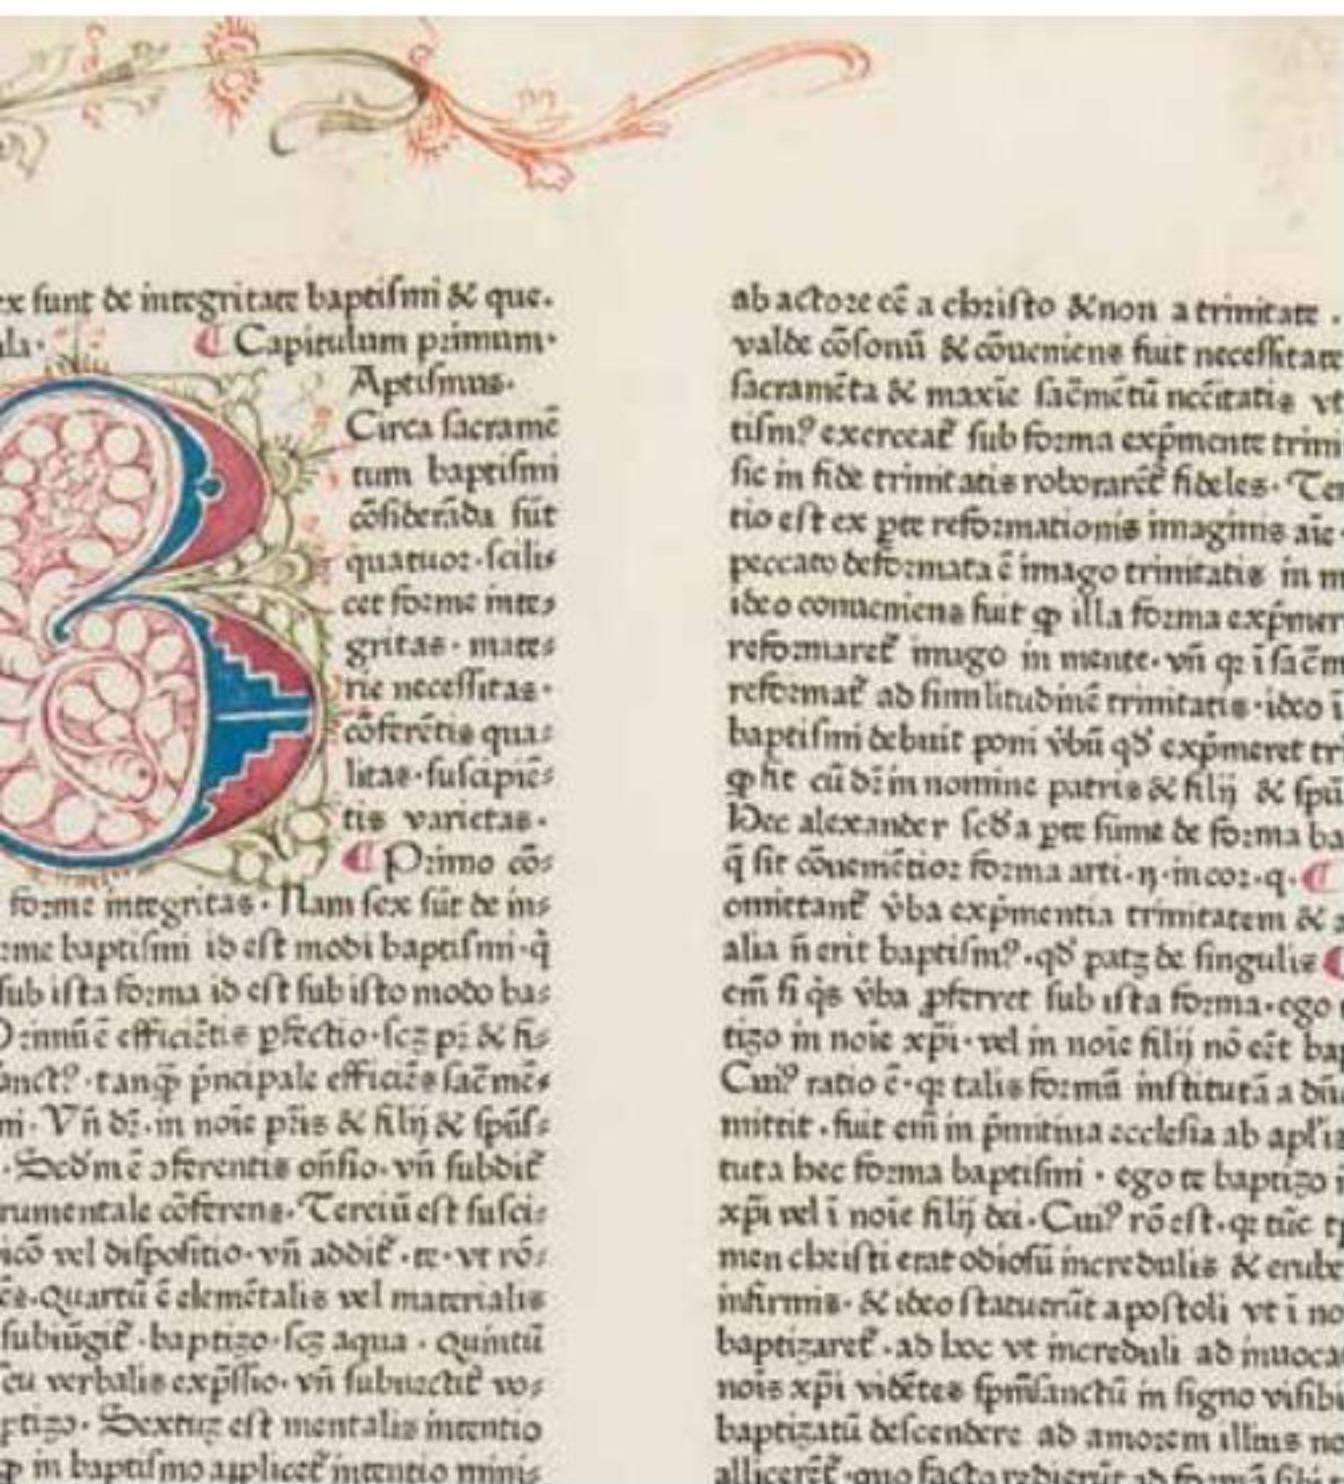 ex sunt de integritate baptismi & que.
ula.
¶ Capitulum primum.
Aptismus.
Circa sacramē
tum baptismi
cōsiderāda sūt
quatuor.scilis
cet forme inte⸗
gritas. mate⸗
rie necessitas.
cōferētis qua⸗
litas.suscipiē⸗
tis varietas.
¶ Primo cō⸗
forme integritas. Nam sex sūt de in⸗
rme baptismi id est modi baptismi.q̄
sub ista forma id est sub isto modo ba⸗
Primū ē efficiētis ꝑfectio.scꝫ pꝛ̄ & fi⸗
anctꝰ.tanꝙ̄ p̄ncipale efficiēs sac̄mē⸗
ni. Vn̄ dꝛ̄.in noīe pr̄is & filij & spūs⸗
. Scd̄m ē ꝯferentis on̄sio.vn̄ subdit᷑
rumentale cōferens. Terciū est susci⸗
icō vel dispositio.vn̄ addit᷑.te.vt rō⸗
ēs.quartū ē elemētalis vel materialis
subiūgit᷑.baptizo.scꝫ aqua. quintū
eu verbalis exp̄ssio.vn̄ subnectit᷑ vo⸗
ptizo. Sextuꝫ est mentalis intentio
ꝙ in baptismo applicet᷑ intentio minis⸗
ab actore cē a christo & non a trinitate.
valde cōsonū & cōueniens fuit necessitate
sacramēta & maxīe sac̄mētū nēcitatis vt
tismꝰ exerceat᷑ sub forma exp̄mente trini
sic in fide trinitatis roborarēt᷑ fideles. Ter
tio est ex ꝑte reformationis imaginis aīe.
peccato deformata ē imago trinitatis in m
ideo conueniens fuit ꝙ illa forma exp̄mer
reformaret᷑ imago in mente.vn̄ qꝛ i sac̄m
reformat᷑ ad similitudinē trinitatis.ideo i
baptismi debuit poni v̄bū qd̄ exp̄meret tri
ꝙ fit cū dꝛ̄ in nomine patris & filij & spū
Hec alexander scd̄a ꝑte sūme de forma ba
q̄ sit cōueniētior forma arti.ij.in cor.q. ¶
omittant᷑ v̄ba exp̄mentia trinitatem & a
alia n̄ erit baptismꝰ.qd̄ patꝫ de singulis ¶
em̄ si q̇s v̄ba ꝓferret sub ista forma.ego
tizo in noīe xp̄i.vel in noīe filij nō eēt bap
Cuiꝰ ratio ē.qꝛ talis formā institutā a dn̄
mittit.fuit em̄ in p̄mitiua ecclesia ab apl̓is
tuta hec forma baptismi. ego te baptizo i
xp̄i vel ī noīe filij dei. Cuiꝰ rō est.qꝛ tūc
men christi erat odiosū incredulis & erube
infirmis. & ideo statuerūt apostoli vt ī no
baptizaret᷑.ad hoc vt increduli ad inuoca
nois xp̄i vidētes sp̄msanctū in signo visibi
baptizatū descendere ad amorem illius no